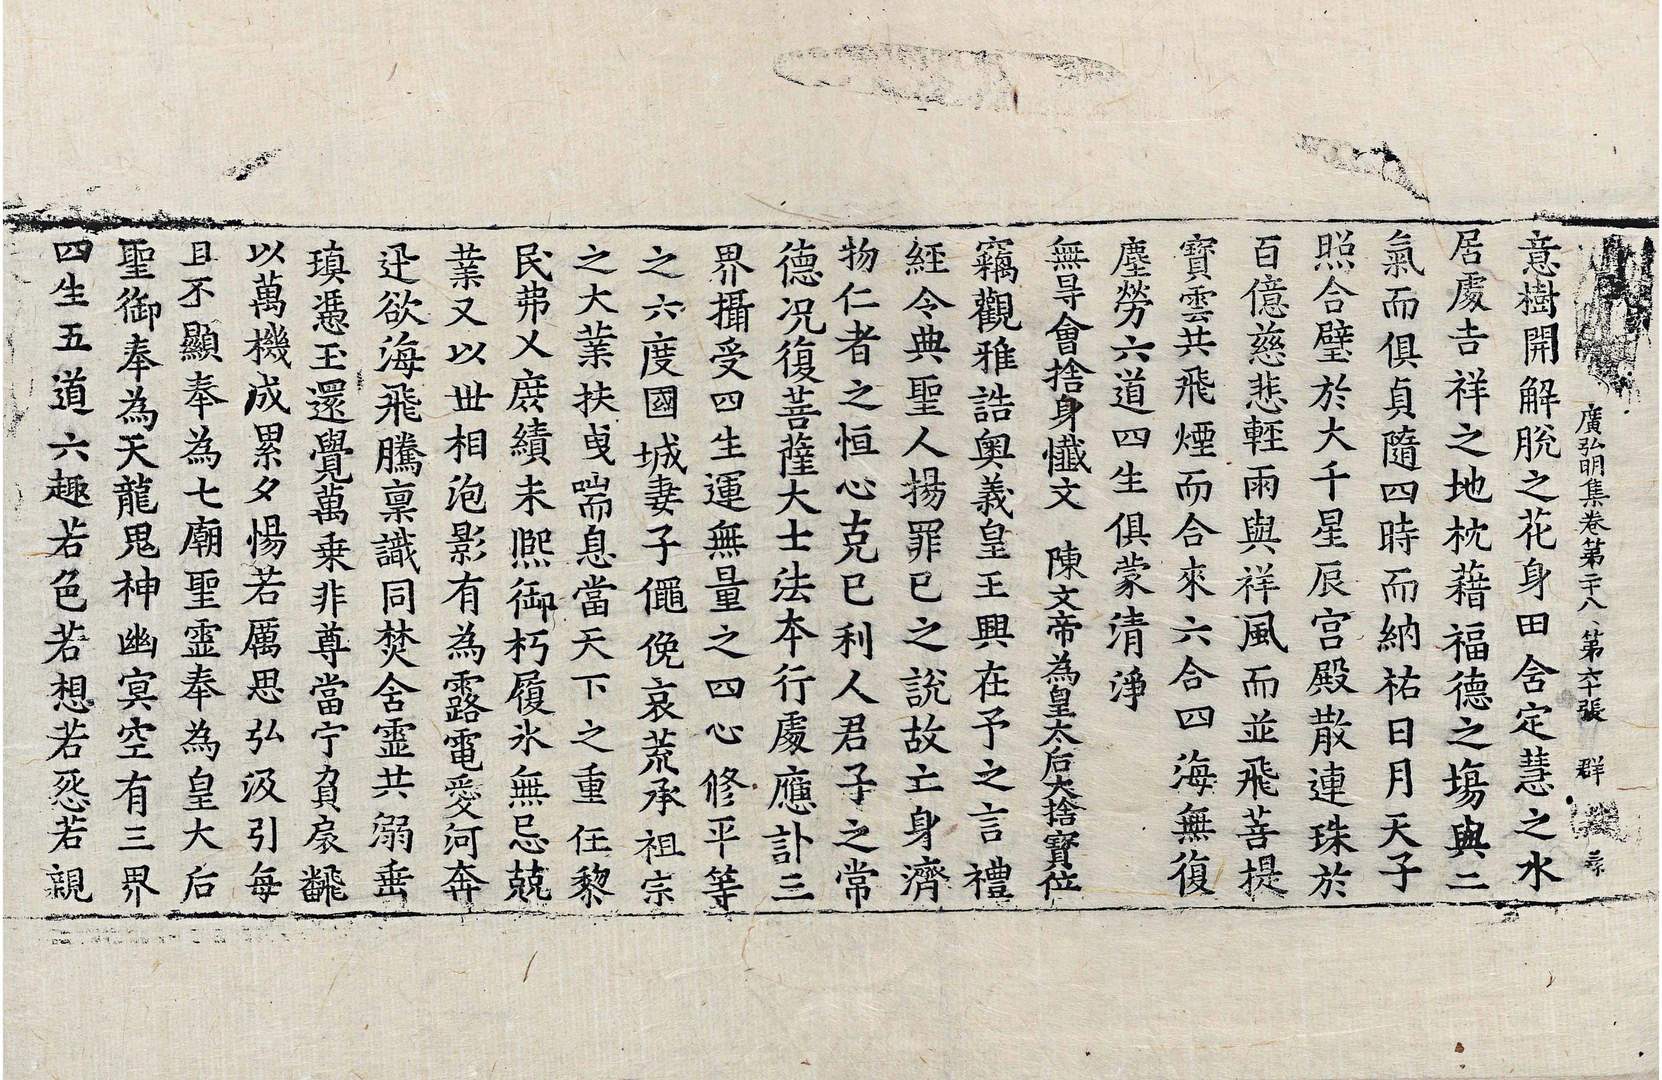 廣弘明集卷第二十八 第六十張 群
意樹開解脫之花身田含定慧之水
居處吉祥之地枕藉福德之塲與二
氣而俱貞隨四時而納祐日月天子
照合璧於大千星辰宮殿散連珠於
百億慈悲輕雨與祥風而並飛菩提
寶雲共飛煙而合來六合四海無復
塵勞六道四生俱蒙清淨
無㝵會捨身懺文 陳文帝為皇太后大捨寶位
竊觀雅誥奧義皇王興在予之言禮
經令典聖人揚罪己之說故亡身濟
物仁者之恒心克己利人君子之常
德况復菩薩大士法本行處應訃三
界攝受四生運無量之四心修平等
之六度國城妻子僶俛哀荒承祖宗
之大業扶曳喘息當天下之重任黎
民弗乂庶績未熈御朽履氷無忘兢
業又以世相泡影有為露電愛河奔
迅欲海飛騰稟識同焚含靈共溺垂
瑱憑玉還覺萬乗非尊當宁負扆翻
以萬機成累夕惕若厲思弘汲引每
且不顯奉為七廟聖靈奉為皇大后
聖御奉為天龍鬼神幽冥空有三界
四生五道六趣若色若想若怨若親